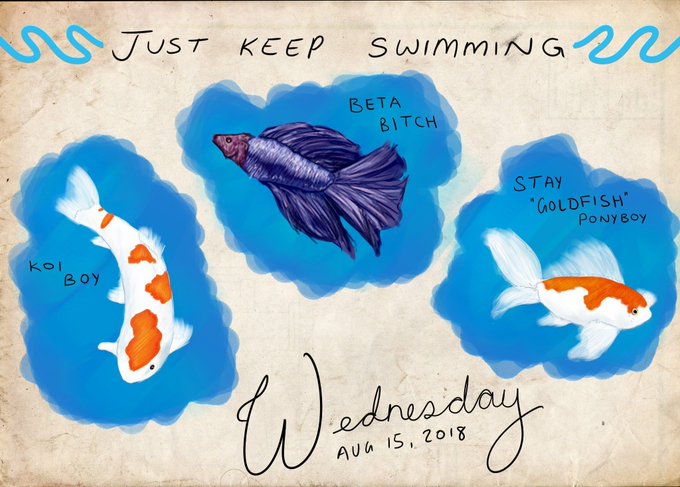 JUST KEEP SWIMMING
BETA
BITCH
STAY
"GOLDFISH"
PONYBOY
KOI
BOY
Wednesday
AUG 15, 2018